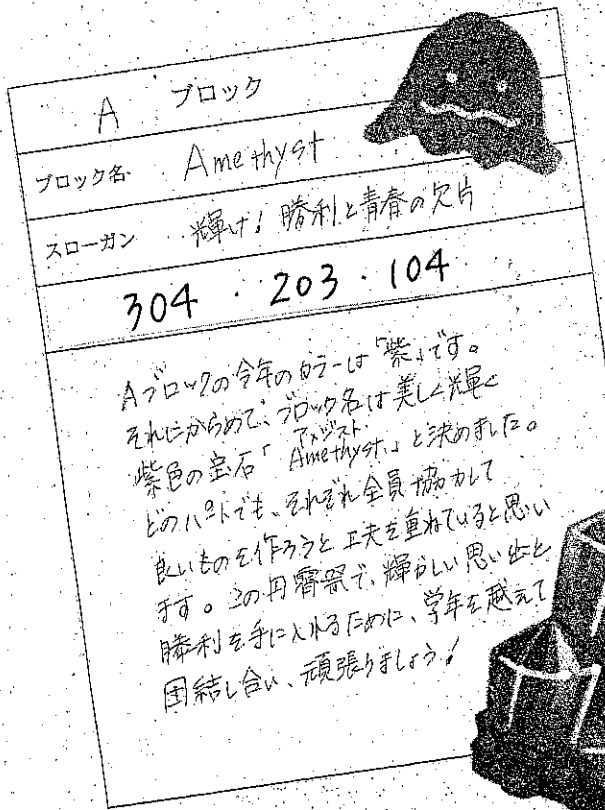 A ブロック
ブロック名 Amethyst
スローガン 輝け！勝利と青春の欠片
304・203・104
Aブロックの今年のカラーは「紫」です。
それにからめて、ブロック名は美しく輝く
アメジスト
紫色の宝石「Amethyst」と決めました。
どのパートでも、それぞれ全員協力して
良いものを作ろうと工夫を重ねていると思い
ます。この丹霄祭で、輝かしい思い出と
勝利を手に入れるために、学年を越えて
団結し合い、頑張りましょう！